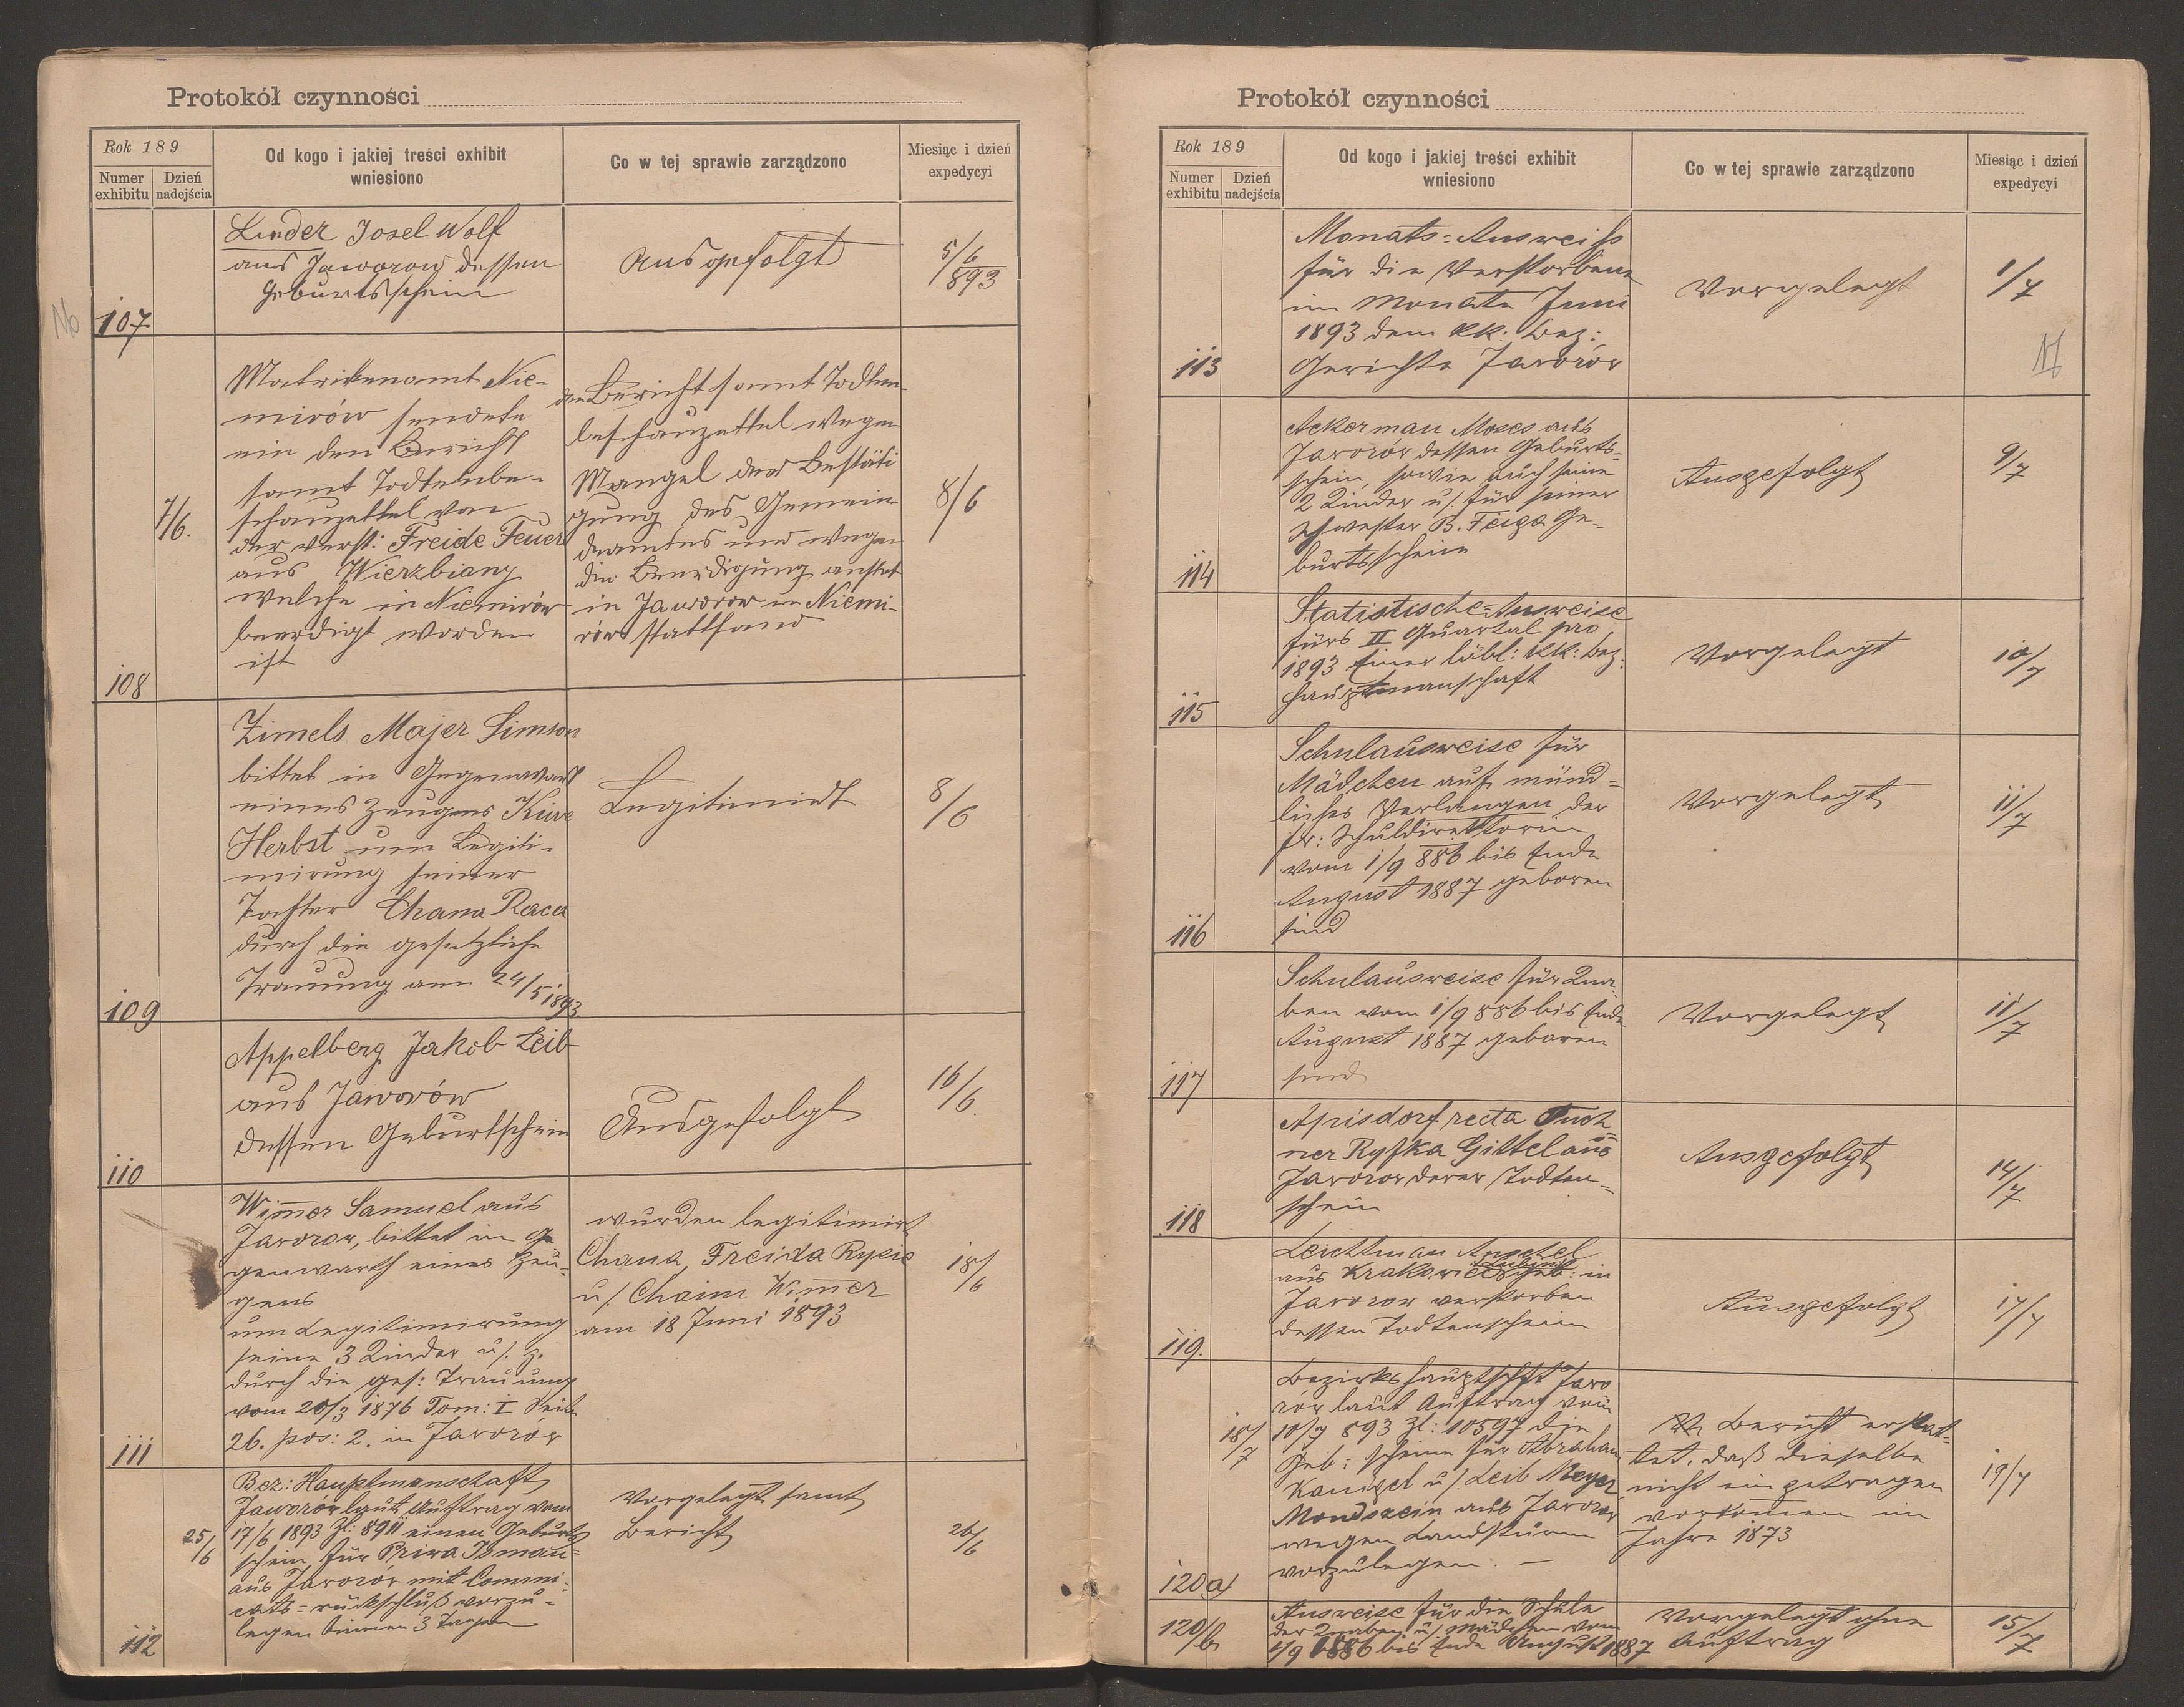 Protokół czynności
Rok 189
Numer exhibitu
Dzień nadejścia
Od kogo i jakiej treści exhibit wniesiono
Co w tej sprawie zarządzono
Miesiąc i dzień expedycyi
107
Linder Josel Wolf
aus Jaworow dessen
Geburtsschein
Ausgefolgt
5/6
893
108
7/6.
Matrikenamt Nie-
mirów sendete
ein den Bericht
samt Todtenbe-
schauzettel von
der verst: Freide Feuer
aus Wierzbiany
welche in Niemirów
beerdigt worden
ist
den Bericht samt Todten-
beschauzettel wegen
Mangel der Bestäti
gung des Gemein
deamtes und wegen
die Beerdigung anstat
in Jaworow in Niemi-
rów stattfand
8/6
109
Zimels Majer Simson
bittet in Gegenwart
eines Zeugens Kiwe
Herbst um Legiti-
mirung seiner
Tochter Chana Raca
durch die gesetzliche
Trauung am 24/5 1893
Legitimirt
8/6
110
Appelberg Jakob Leib
aus Jaworów
dessen Geburtschein
Ausgefolgt
16/6.
111
Wimer Samuel aus
Jaworow, bittet in Ge
genwarth eines Zeu-
gens
um Legitimirung
seine 3 Kinder u/. z.
durch die ges: Trauung
vom 20/3 1876 Tom: I Seite
26. pos: 2. in Jaworów
wurden legitimirt
Chana, Freida Rysie
u/. Chaim Wimer
am 18 Juni 1893
18/6
112
25/6
Bez: Hauptmanschaft
Jaworów laut Auftrag vom
17/6 1893 Zl: 8911 einen Geburts
schein für Priwa
aus Jaworów mit Comini-
cats=rückschluß vorzu-
legen binnen 3 Tagen
Vorgelegt samt
Bericht
26/6
Protokół czynności
Rok 189
Numer exhibitu
Dzień nadejścia
Od kogo i jakiej treści exhibit wniesiono
Co w tej sprawie zarządzono
Miesiąc i dzień expedycyi
113
Monats=Ausweiss
für die Verstorbene
im Monate Juni
1893 dem kk: Bez:
Gerichte Jaworów
Vorgelegt
1/7
114
Ackerman Moses aus
Jaworów dessen Geburts=
schein, sowie auch seine
2 Kinder u/. für seiner
Schwester B. Feiga Ge-
burtsschein
Ausgefolgt
9/7
115
Statistische=Ausweise
fürs II Quartal pro
1893 Einer löbl: kk: Bez:
Hauptmanschaft
Vorgelegt
10/7
116
Schulausweise für
Mädchen auf münd=
liches Verlangen der
Fr: Schuldirektorin
vom 1/9 886 bis Ende
August 1887 geboren
sind
Vorgelegt
11/7
117
Schulausweise für Kna-
ben vom 1/9 886 bis Ende
August 1887 geboren
sind
Vorgelegt
11/7
118
Apisdorf recta Tuch
ner Ryfka Gittel aus
Jaworow deren Todten=
schein
Ausgefolgt
14/7
119.
Leichtman Anschel
aus Krakowiec geb: in
Jaworow verstorben
dessen Todtenschein
Ausgefolgt
17/7
120a/
18/7
Bezirkshauptschft Jawo
rów laut Auftrag vom
10/7 893 Zl: 10597 die
Geb: scheine für Abraham
Kanigel u/. Leib Meyer
Mondschein aus Jaworów
wegen Landsturm
vorzulegen. —
Bericht erstat=
tet, daß dieselbe
nicht eingetragen
vorkommen im
Jahre 1873
19/7
120/b
Ausweise für die Schule
der Knaben u/. Mädchen vom
1/9 1886 bis Ende August 1887
Vorgelegt ohne
Auftrag
15/7